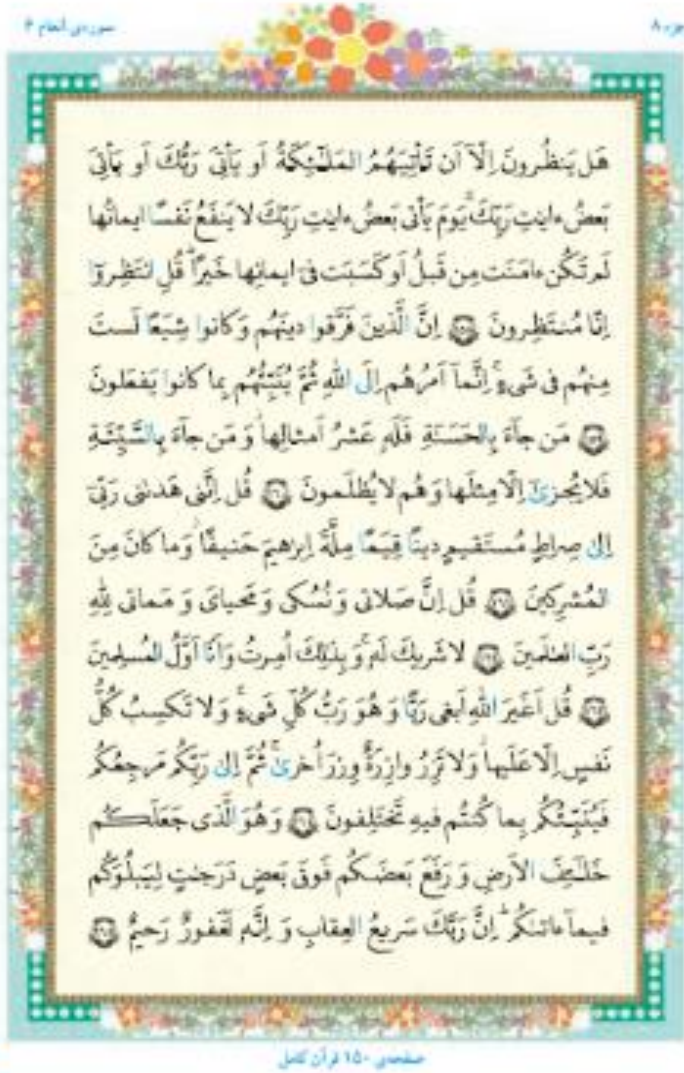 جزء ۸
سوره‌ی انعام ۶
هَل يَنظُرونَ اِلّآ اَن تَأتِيَهُمُ المَلٰٓئِكَةُ اَو يَأتِىَ رَبُّكَ اَو يَأتِىَ
بَعضُ ءايٰتِ رَبِّكَ ۗ يَومَ يَأتى بَعضُ ءايٰتِ رَبِّكَ لا يَنفَعُ نَفسًا ايمانُها
لَم تَكُن ءامَنَت مِن قَبلُ اَو كَسَبَت فى ايمانِها خَيرًا ۗ قُلِ انتَظِروٓا
اِنّا مُنتَظِرونَ ﴿۱۵۸﴾ اِنَّ الَّذينَ فَرَّقوا دينَهُم وَ كانوا شِيَعًا لَستَ
مِنهُم فى شَىءٍ ۚ اِنَّمآ اَمرُهُم اِلَى اللّٰهِ ثُمَّ يُنَبِّئُهُم بِما كانوا يَفعَلونَ
﴿۱۵۹﴾ مَن جآءَ بِالحَسَنَةِ فَلَهٗ عَشرُ اَمثالِها ۖ وَ مَن جآءَ بِالسَّيِّئَةِ
فَلا يُجزىٰٓ اِلّا مِثلَها وَ هُم لا يُظلَمونَ ﴿۱۶۰﴾ قُل اِنَّنى هَدٰىنى رَبّىٓ
اِلىٰ صِراطٍ مُستَقيمٍ دينًا قِيَمًا مِلَّةَ اِبرٰهيمَ حَنيفًا ۚ وَ ما كانَ مِنَ
المُشرِكينَ ﴿۱۶۱﴾ قُل اِنَّ صَلاتى وَ نُسُكى وَ مَحياىَ وَ مَماتى لِلّٰهِ
رَبِّ العٰلَمينَ ﴿۱۶۲﴾ لا شَريكَ لَهٗ ۖ وَ بِذٰلِكَ اُمِرتُ وَ اَنَا اَوَّلُ المُسلِمينَ
﴿۱۶۳﴾ قُل اَغَيرَ اللّٰهِ اَبغى رَبًّا وَ هُوَ رَبُّ كُلِّ شَىءٍ ۚ وَ لا تَكسِبُ كُلُّ
نَفسٍ اِلّا عَلَيها ۚ وَ لا تَزِرُ وازِرَةٌ وِزرَ اُخرىٰ ۚ ثُمَّ اِلىٰ رَبِّكُم مَرجِعُكُم
فَيُنَبِّئُكُم بِما كُنتُم فيهِ تَختَلِفونَ ﴿۱۶۴﴾ وَ هُوَ الَّذى جَعَلَكُم
خَلٰٓئِفَ الاَرضِ وَ رَفَعَ بَعضَكُم فَوقَ بَعضٍ دَرَجٰتٍ لِيَبلُوَكُم
فيمآ ءاتٰىكُم ۗ اِنَّ رَبَّكَ سَريعُ العِقابِ وَ اِنَّهٗ لَغَفورٌ رَحيمٌ ﴿۱۶۵﴾
صفحه‌ی ۱۵۰ قرآن کامل